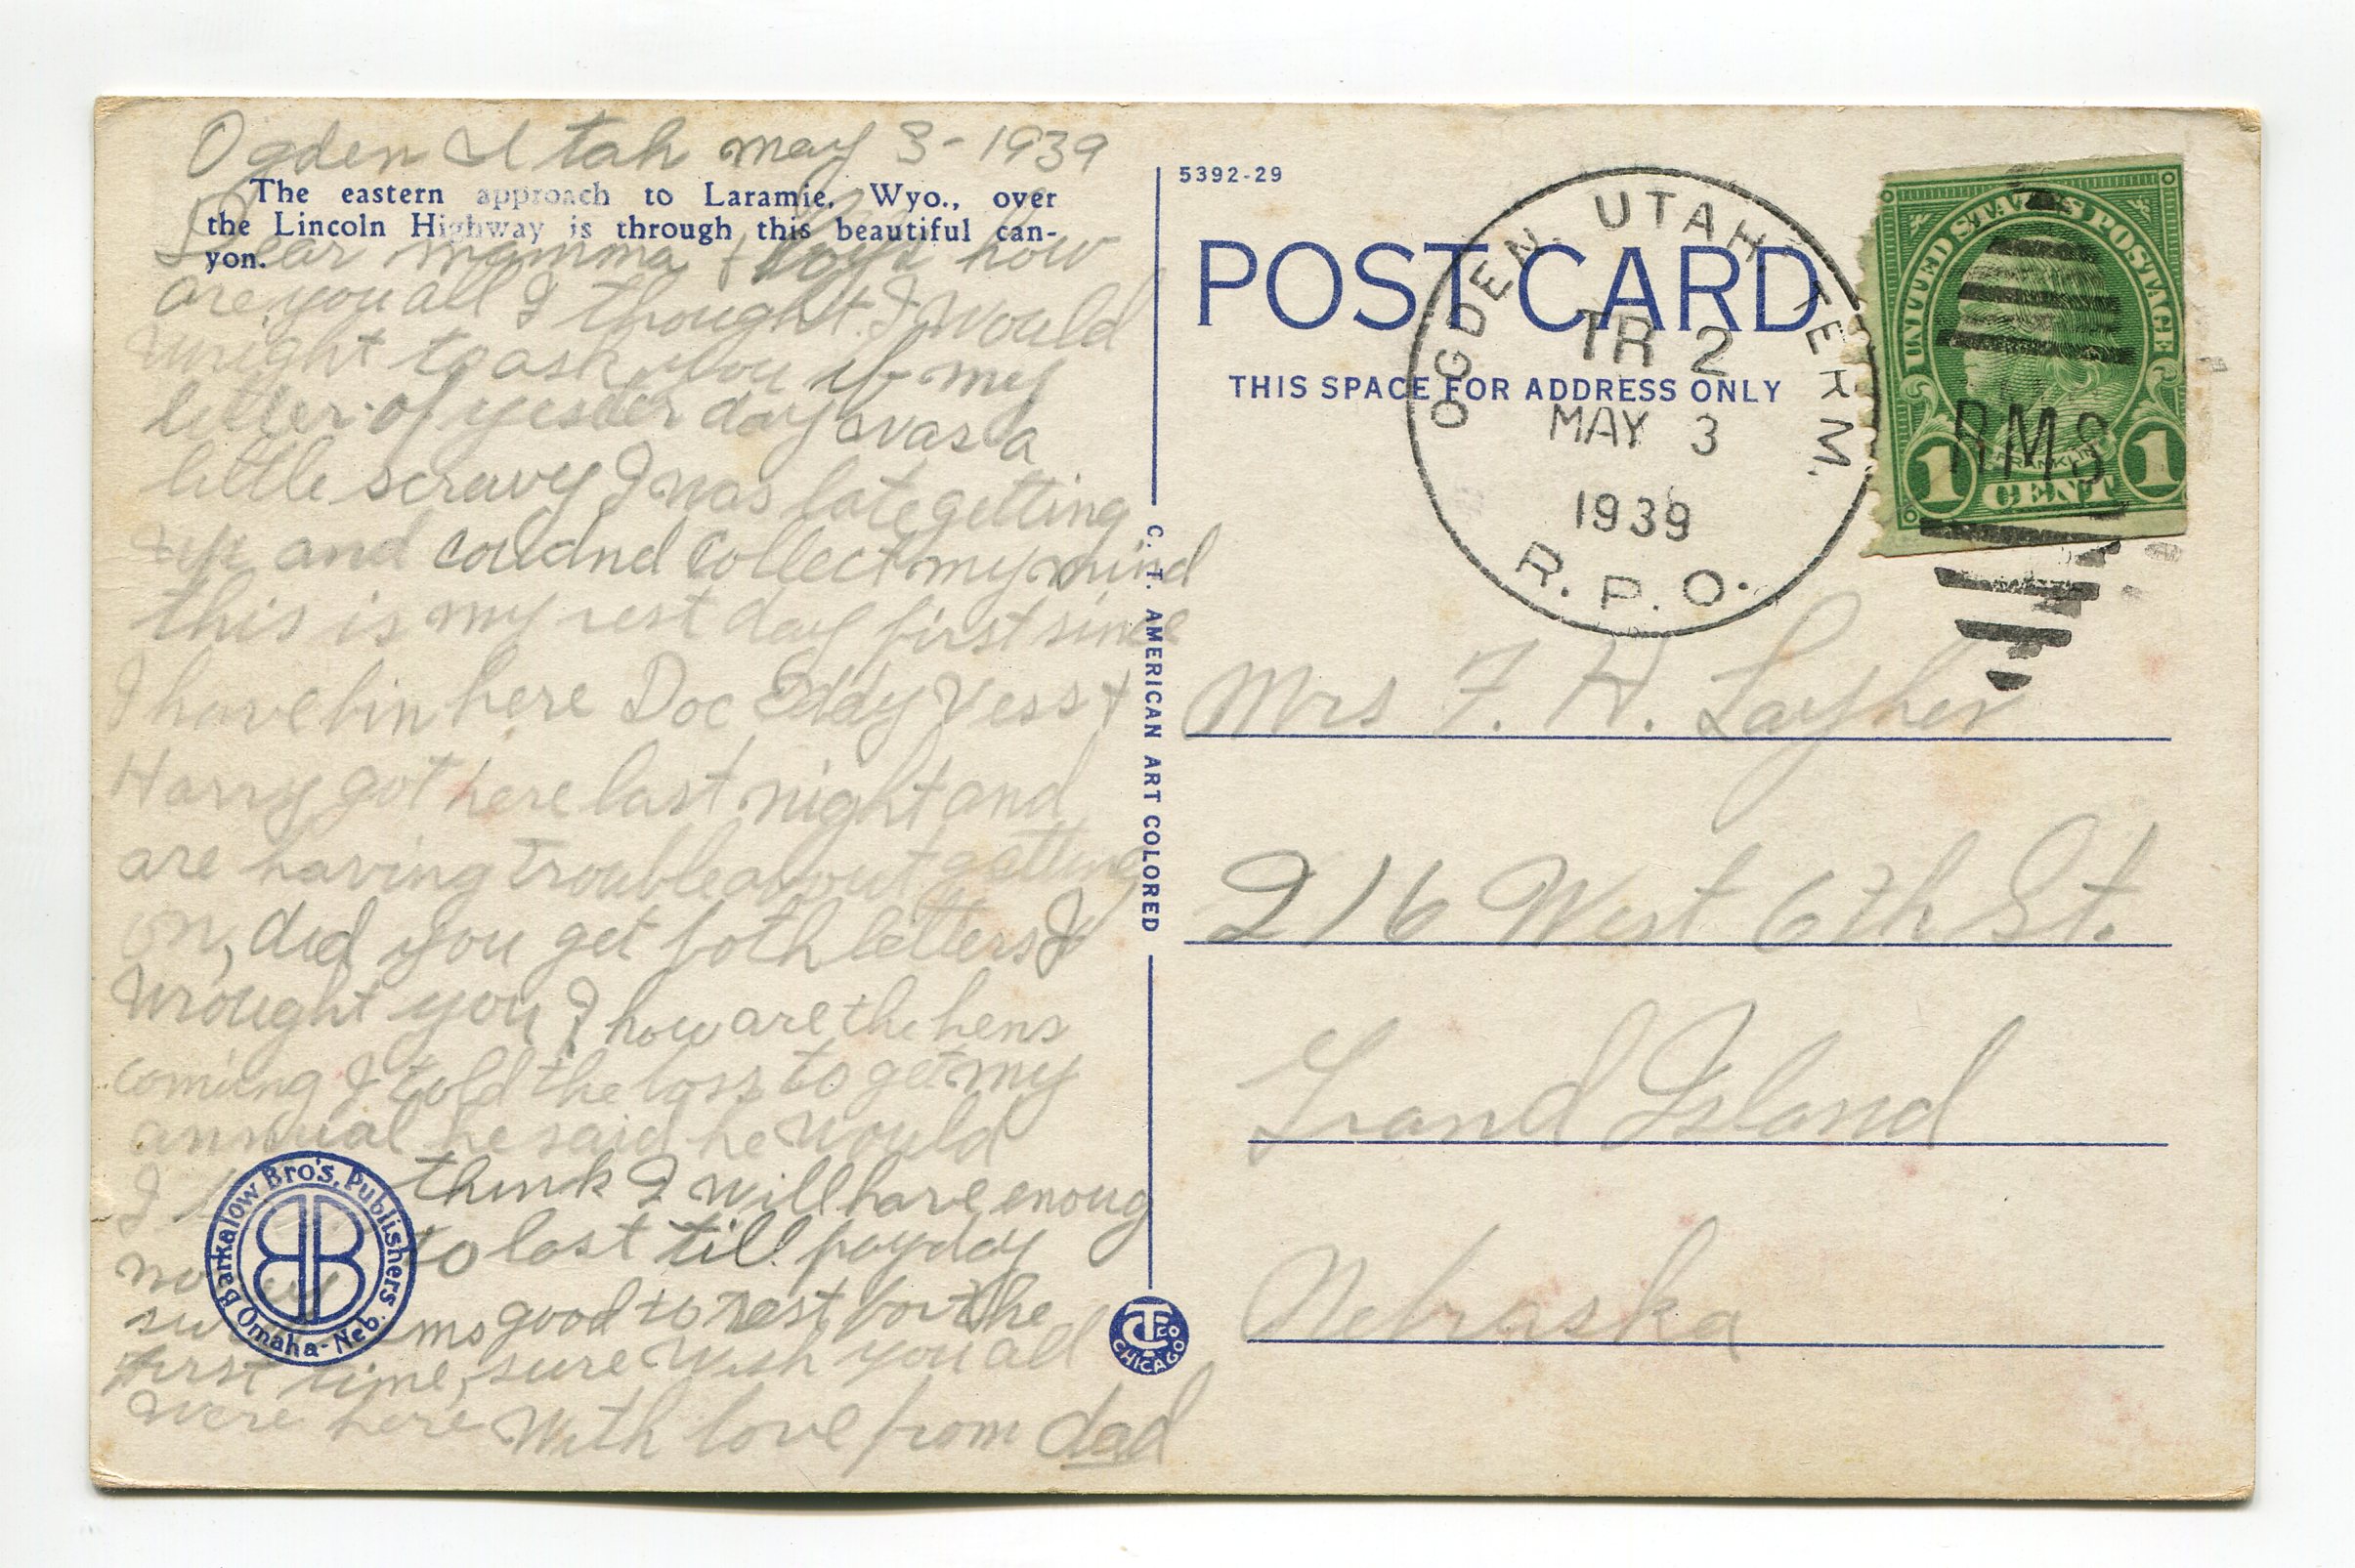 Ogden Utah may 3-1939
The eastern approach to Laramie, Wyo., over
the Lincoln Highway is through this beautiful can-
yon.
Dear mamma & boys how
are you all I thought I would
wright to ask you if my
letter of yesterday was a
little scrawy I was late getting
up and couldnd collect my mind
this is my rest day first since
I have bin here Doc Eddy Vess +
Harry got here last night and
are having trouble about getting
on, did you get both letters I
wrought you ? how are the hens
coming I told the boss to get my
annual he said he would
I think I will have enoug
money to last till payday
sure seems good to rest for the
first time, sure wish you all
were here With love from dad
Barkalow Bro's. Publishers
Omaha-Neb.
C. T. AMERICAN ART COLORED
CT CO
CHICAGO
5392-29
POST CARD
THIS SPACE FOR ADDRESS ONLY
OGDEN. UTAH TERM.
TR 2
MAY 3
1939
R.P.O.
UNITED STATES POSTAGE
RMS
FRANKLIN
1 CENT 1
Mrs F. H. Layher
216 West 6th St.
Grand Island
Nebraska